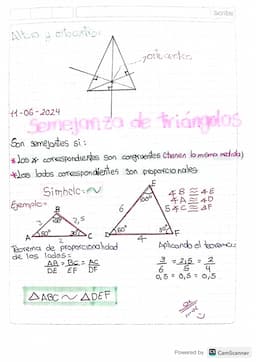 Scribe
Altura y ortocentro
ortocentro
11-06-2024
Semejanza de triángulos
Son semejantes si:
*Los ∢ correspondientes son congruentes (tienen la misma medida)
*Los lados correspondientes son proporcionales
Símbolo: ~
Ejemplo:
B
100°
3
2,5
A
C
2
E
100°
6
5
D
60°
F
4
∢B ≅ ∢E
∢A ≅ ∢D
∢C ≅ ∢F
Teorema de proporcionalidad
de los lados:
AB = BC = AC
DE EF DF
Aplicando el teorema:
3 = 2,5 = 2
6 5 4
0,5 = 0,5 = 0,5
△ABC ~ △DEF
Powered by CS CamScanner